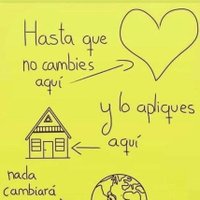 Hasta que
no cambies
aquí
y lo apliques
aquí
nada
cambiará